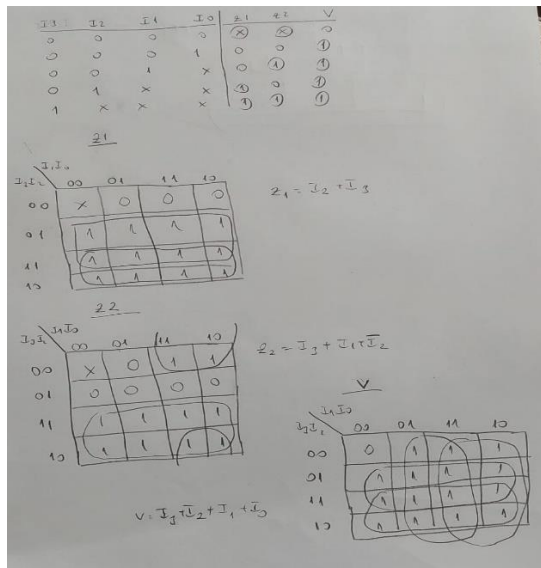 I3 I2 I1 I0 z1 z2 V
0 0 0 0 x x 0
0 0 0 1 0 0 1
0 0 1 x 0 1 1
0 1 x x 1 0 1
1 x x x 1 1 1
z1
I1I0
I3I2 00 01 11 10
00 x 0 0 0
01 1 1 1 1
11 1 1 1 1
10 1 1 1 1
z1 = I2 + I3
z2
I1I0
00 01 11 10
00 x 0 1 1
01 0 0 0 0
11 1 1 1 1
10 1 1 1 1
V
I1I0
I3I2 00 01 11 10
00 0 1 1 1
01 1 1 1 1
11 1 1 1 1
10 1 1 1 1